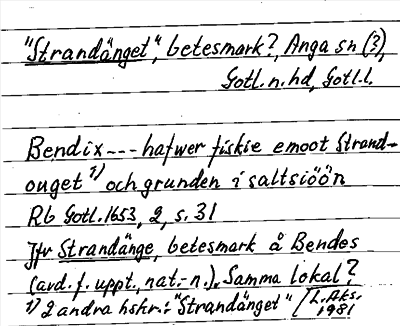 "Strandänget", betesmark?, Anga sn (?),
Gotl. n. hd, Gotl. l.
Bendix --- hafwer fiskie emoot Strand-
ouget 1) och grunden i saltsiöön
Rb Gotl. 1653, 2, s. 31
Jfr Strandänge, betesmark å Bendes
(avd. f. uppt., nat.-n.). Samma lokal?
1) 2 andra hskr.: "Strandänget" / L. Aks.
1981